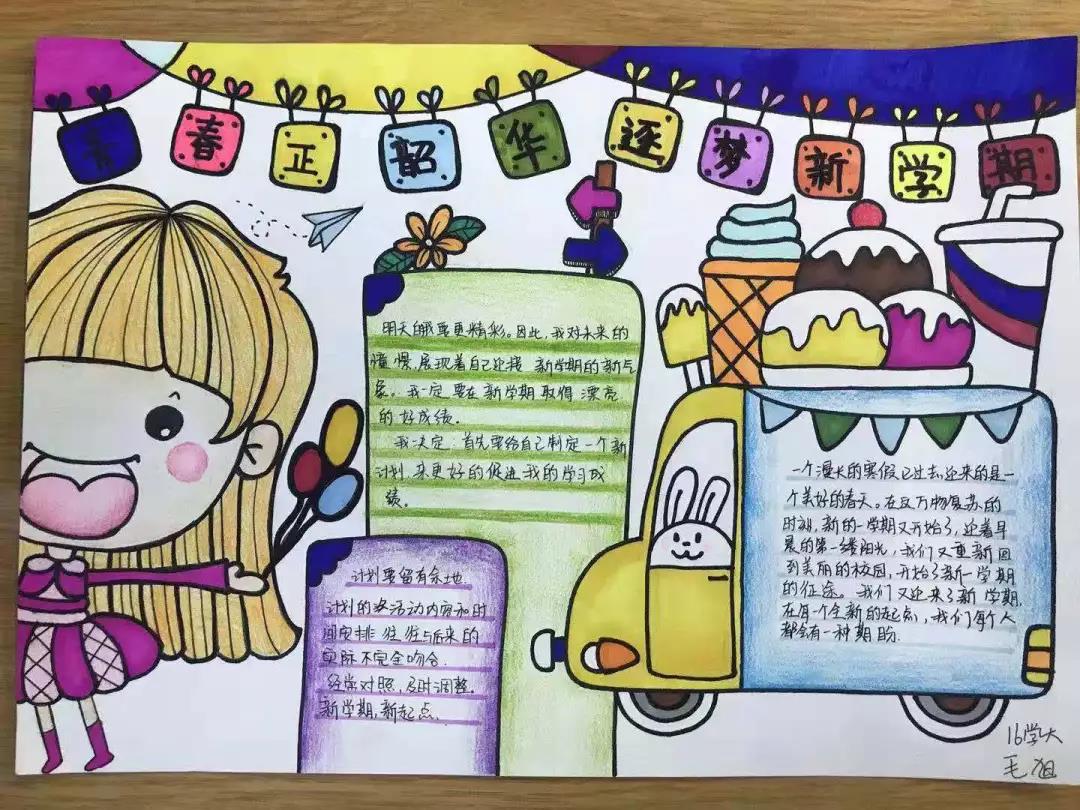 青春正韶华逐梦新学期
明天的我要更精彩。因此,我对未来的
憧憬,展现着自己迎接 新学期的新气
象。我一定要在新学期取得漂亮
的好成绩.
我决定:首先要给自己制定一个新
计划.来更好的促进我的学习成
绩。
计划要留有余地
计划的 活动内容和时
间安排 往往与后来的
实际不完全吻合.
经常对照,及时调整.
新学期,新起点.
一个漫长的寒假已过去,迎来的是一
个美好的春天。在这万物复苏的
时刻.新的一学期又开始了,迎着早
晨的第一缕阳光,我们又重新回
到美丽的校园,开始了新一学期
的征途。我们又迎来了新学期.
在有一个全新的起点,我们每个人
都会有一种期盼.
16学
毛